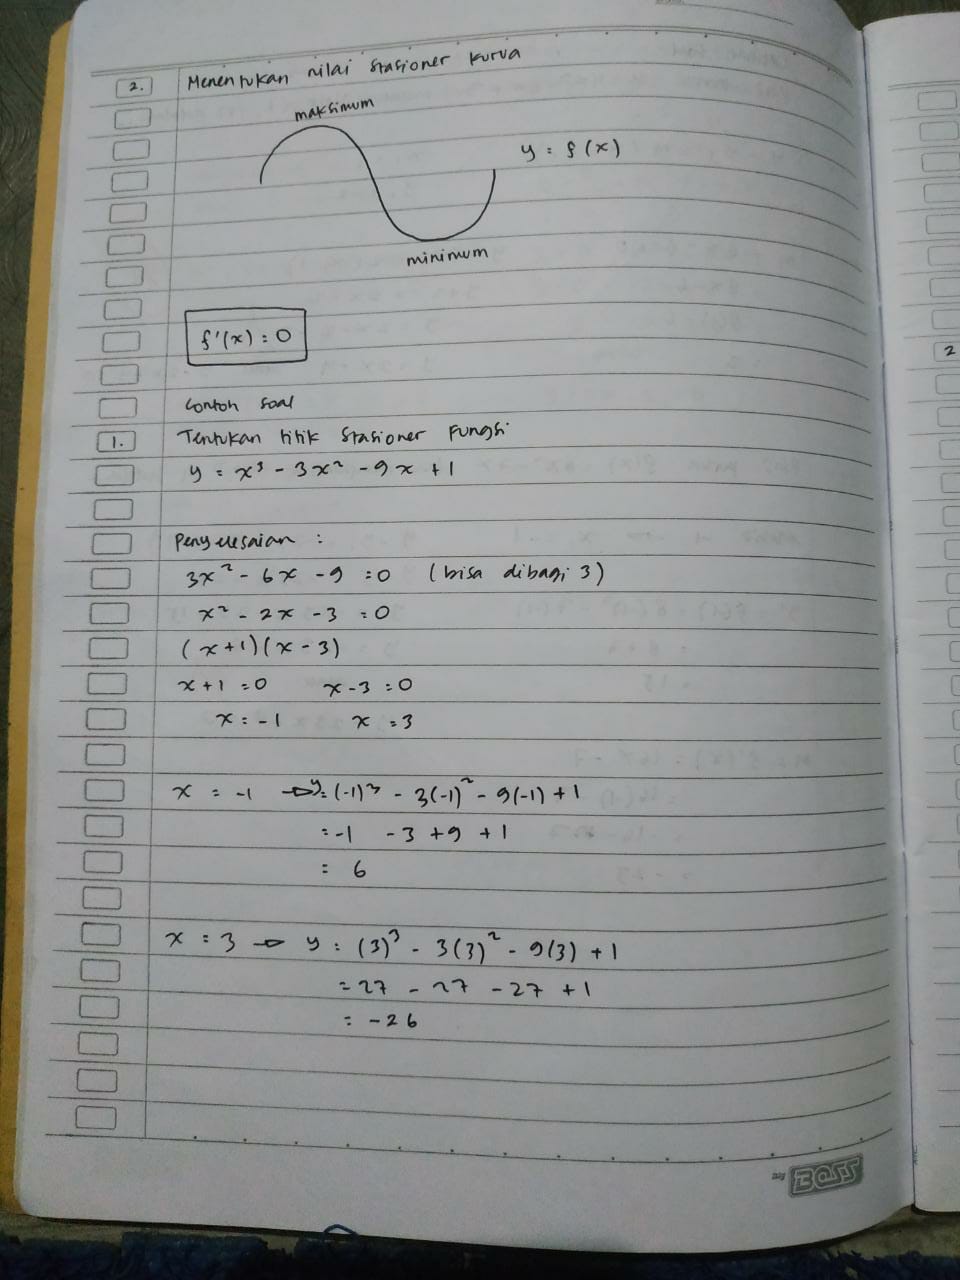 2. Menentukan nilai stasioner kurva
maksimum
y = f(x)
minimum
f'(x) = 0
Contoh soal
1. Tentukan titik stasioner fungsi
y = x³ - 3x² - 9x + 1
Penyelesaian :
3x² - 6x - 9 = 0 (bisa dibagi 3)
x² - 2x - 3 = 0
(x+1)(x - 3)
x + 1 = 0 x - 3 = 0
x = -1 x = 3
x = -1 → y = (-1)³ - 3(-1)² - 9(-1) + 1
= -1 - 3 + 9 + 1
= 6
x = 3 → y = (3)³ - 3(3)² - 9(3) + 1
= 27 - 27 - 27 + 1
= -26
2
BOSS